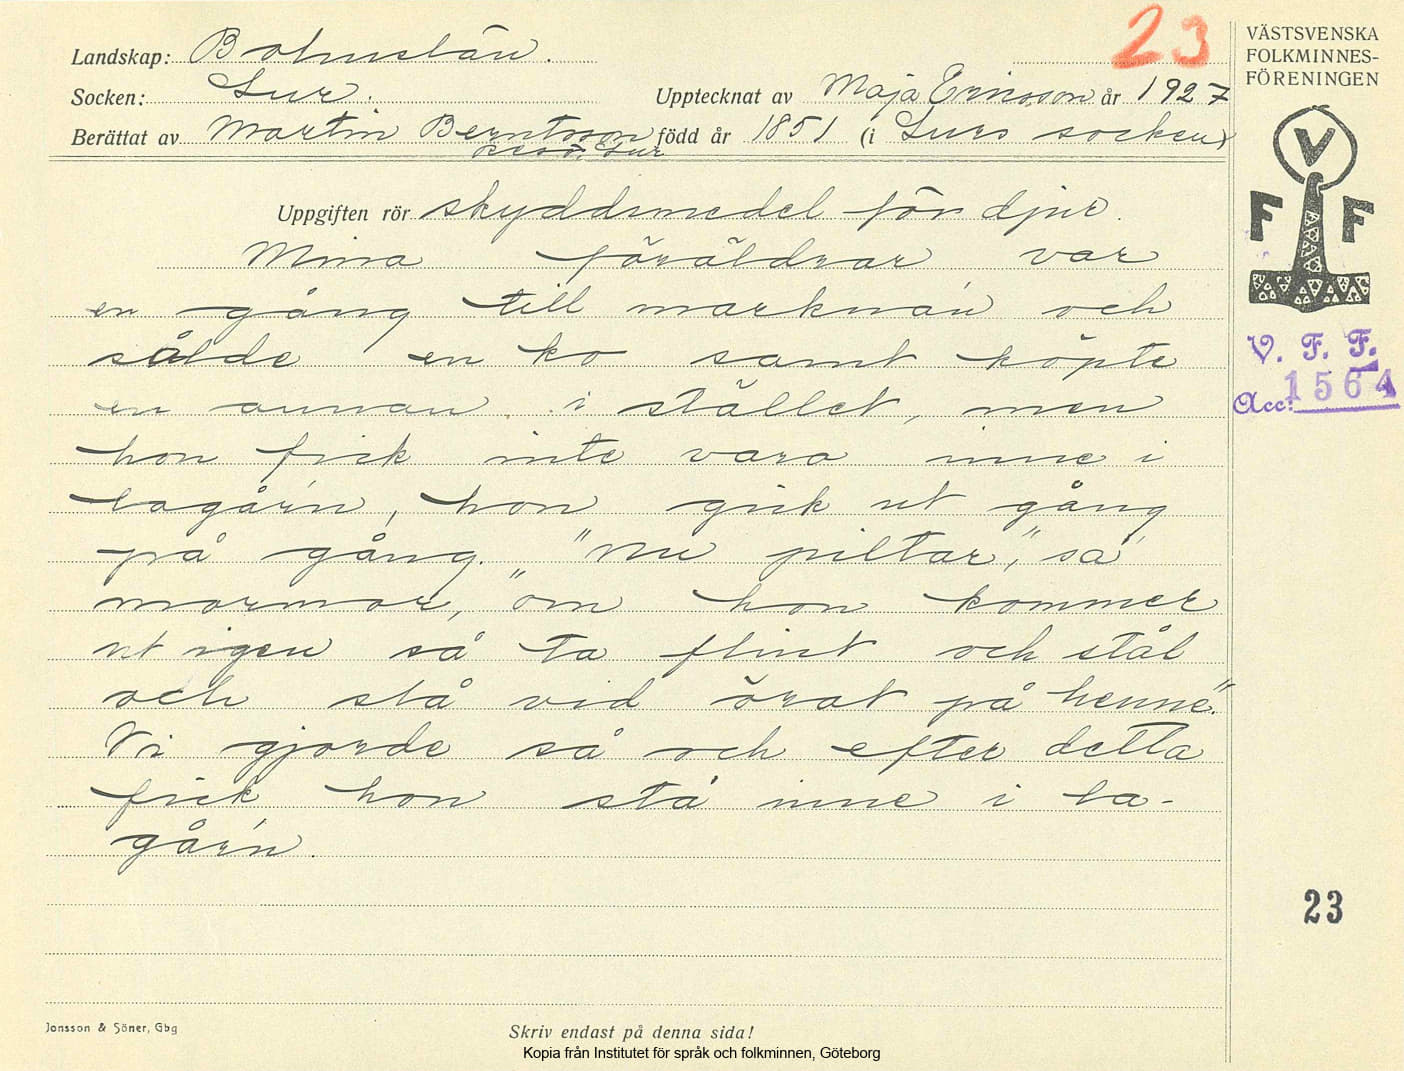 23
Landskap: Bohuslän.
Socken: Lur.
Upptecknat av Maja Ericsson år 1927
Berättat av Martin Berntsson född år 1851 (i Lurs socken)
Lur
Uppgiften rör skyddsmedel för djur.
Mina föräldrar var
en gång till marknán och
sålde en ko samt köpte
en annan i stället, men
hon fick inte vara inne i
lagår'n, hon gick ut gång
på gång. "Nu piltar," sa'
mormor, "om hon kommer
ut igen så ta flint och stål
och slå vid örat på henne."
Vi gjorde så och efter detta
fick hon stå inne i la-
går'n.
VÄSTSVENSKA
FOLKMINNES-
FÖRENINGEN
V
F F
V. F. F.
Acc: 1564
23
Jonsson & Söner, Gbg
Skriv endast på denna sida!
Kopia från Institutet för språk och folkminnen, Göteborg